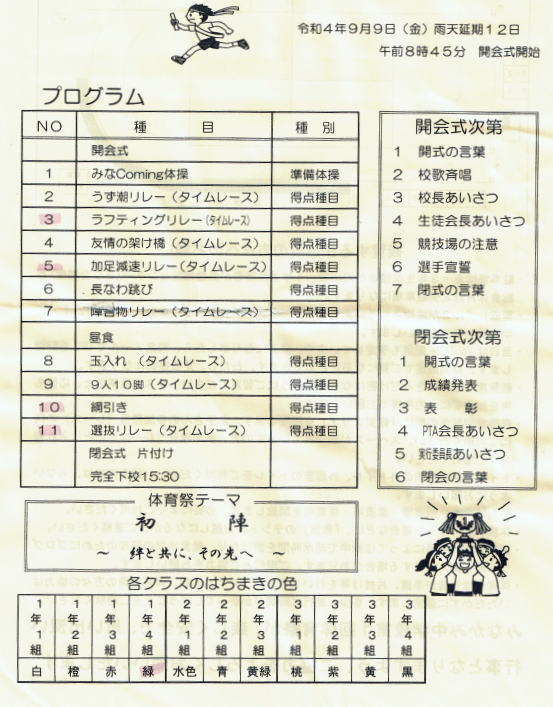 令和4年9月9日（金）雨天延期12日
午前8時45分　開会式開始
プログラム
NO　種　目　種　別
開会式
1　みなComing体操　準備体操
2　うず潮リレー（タイムレース）　得点種目
3　ラフティングリレー（タイムレース）　得点種目
4　友情の架け橋（タイムレース）　得点種目
5　加足減速リレー（タイムレース）　得点種目
6　長なわ跳び　得点種目
7　障害物リレー（タイムレース）　得点種目
昼食
8　玉入れ（タイムレース）　得点種目
9　9人10脚（タイムレース）　得点種目
10　綱引き　得点種目
11　選抜リレー（タイムレース）　得点種目
閉会式　片付け
完全下校15:30
開会式次第
1　開式の言葉
2　校歌斉唱
3　校長あいさつ
4　生徒会長あいさつ
5　競技場の注意
6　選手宣誓
7　閉式の言葉
閉会式次第
1　開式の言葉
2　成績発表
3　表　彰
4　PTA会長あいさつ
5　新委員長あいさつ
6　閉会の言葉
体育祭テーマ
初　陣
～　絆と共に、その先へ　～
各クラスのはちまきの色
1年1組　1年2組　1年3組　1年4組　2年1組　2年2組　2年3組　3年1組　3年2組　3年3組　3年4組
白　橙　赤　緑　水色　青　黄緑　桃　紫　黄　黒